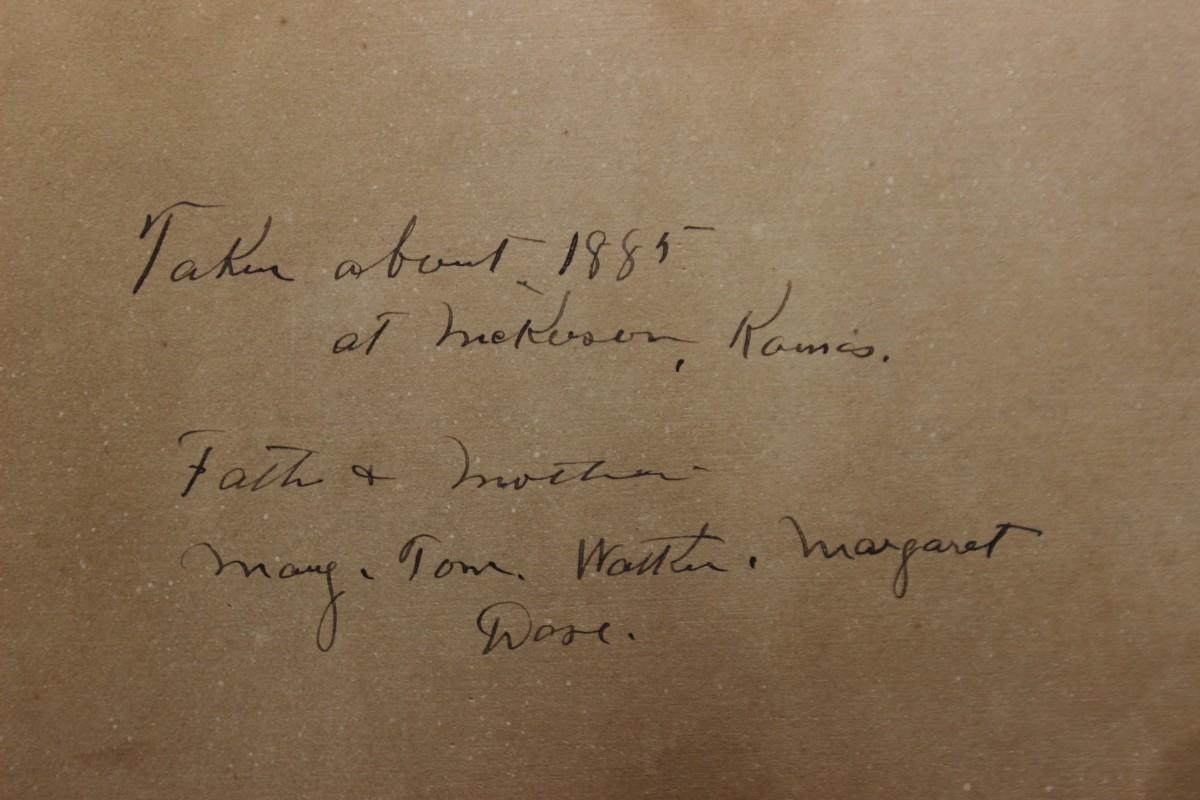 Taken about 1885
at McKerson, Kansas.
Father & Mother
Mary. Tom. Walter. Margaret
Dave.